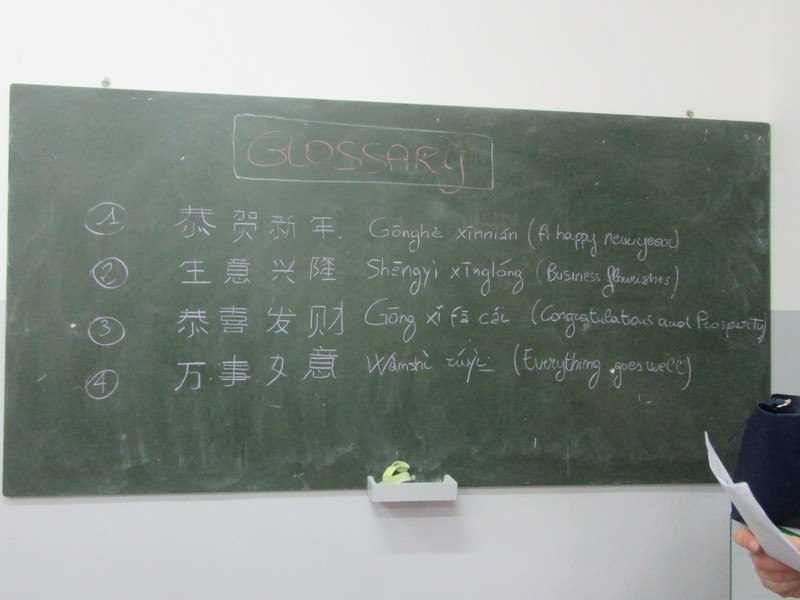 GLOSSARY
① 恭贺新年. Gōnghè xīnnián (A happy new year)
② 生意兴隆 Shēngyì xīnglóng (Business flourishes)
③ 恭喜发财 Gōng xǐ fā cái (Congratulations and Prosperity)
④ 万事如意 Wànshì rúyì (Everything goes well)